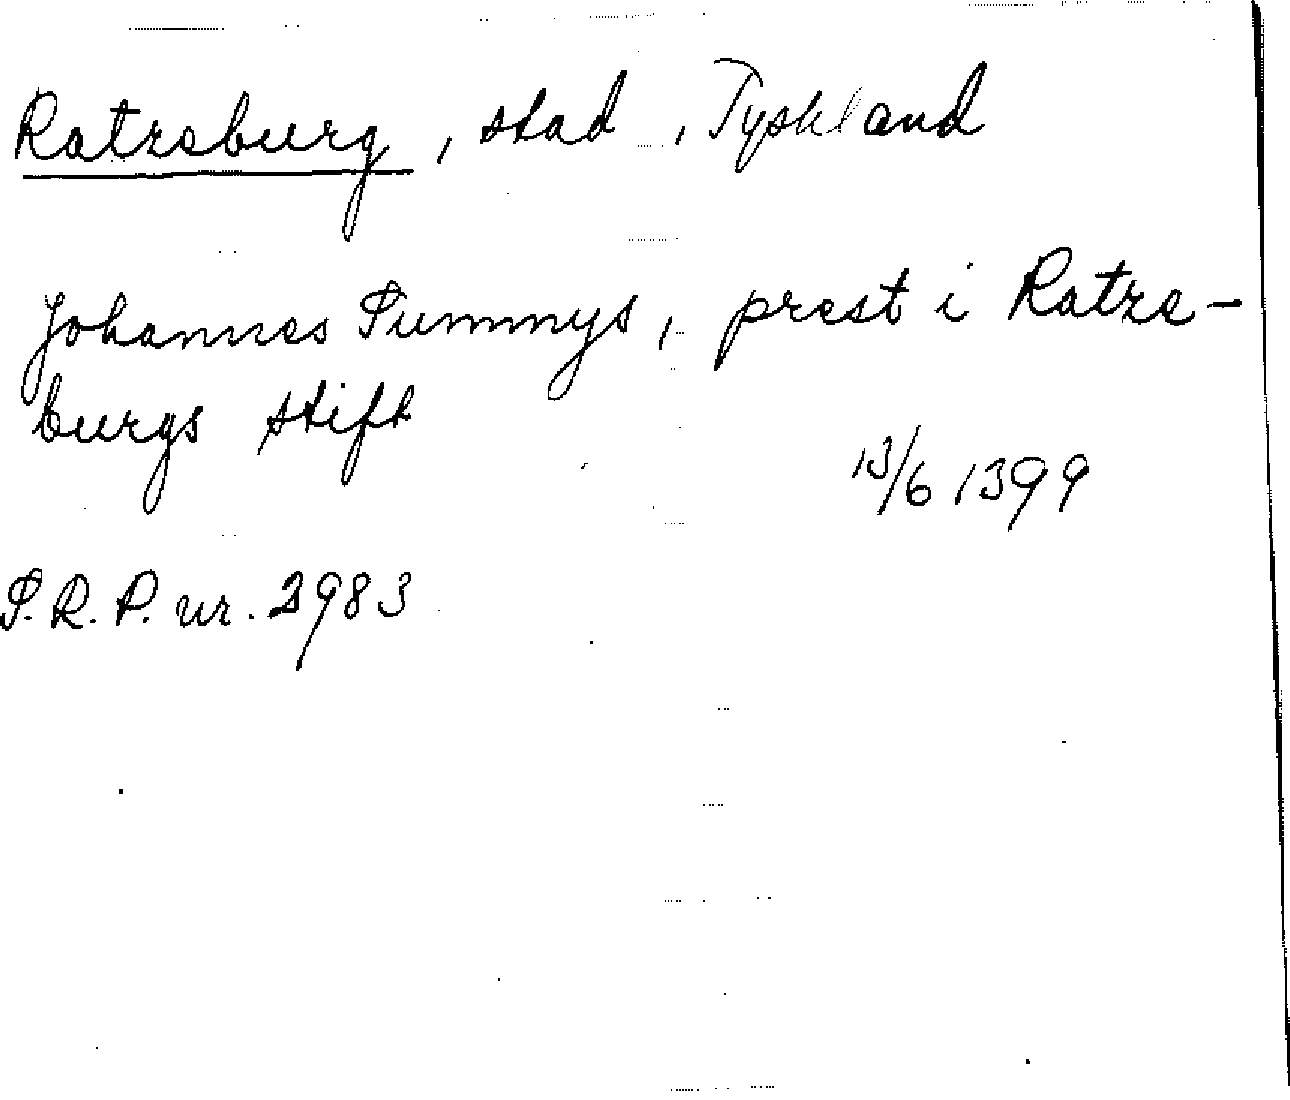 Ratzeburg, stad, Tyskland
Johannes Summys, prest i Ratze-
burgs stift
13/6 1399
S.R.P. nr. 2983